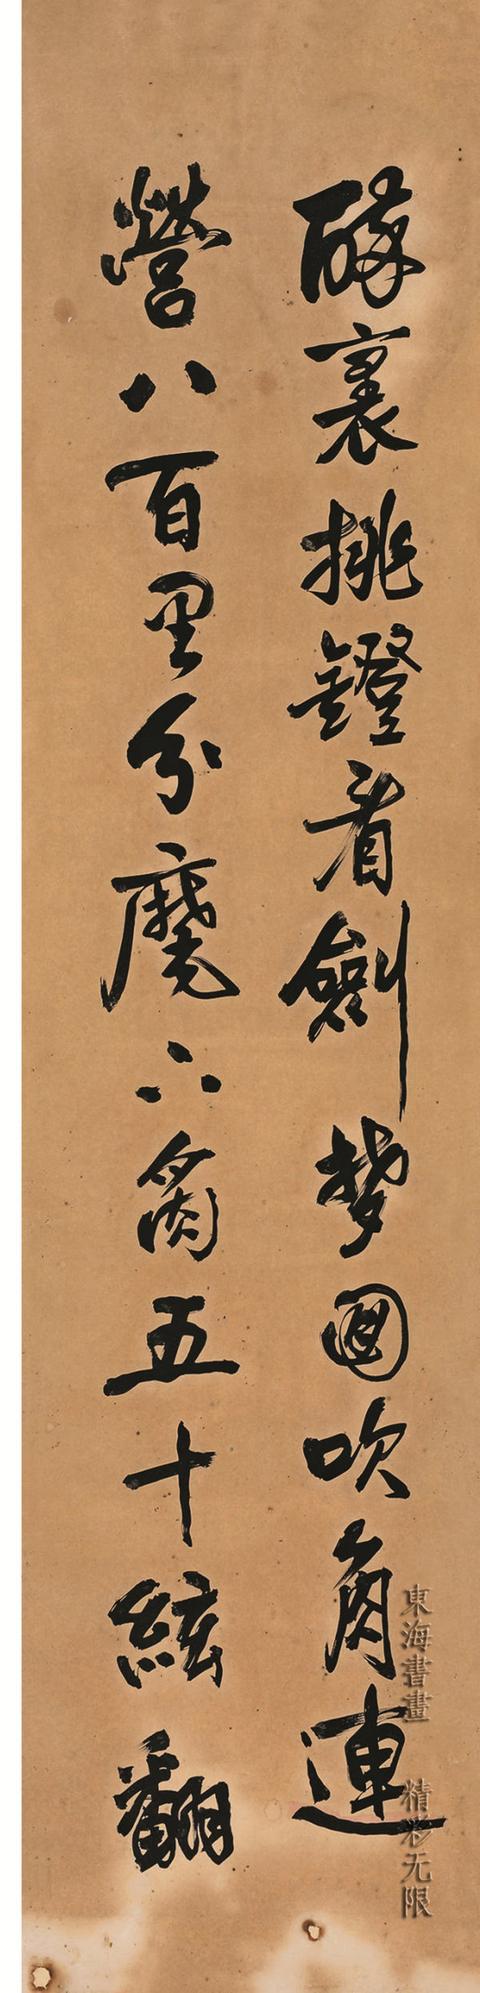 醉裏挑鐙看劍梦回吹角連
營八百里分麾下炙五十絃翻
東海書畫 精彩无限